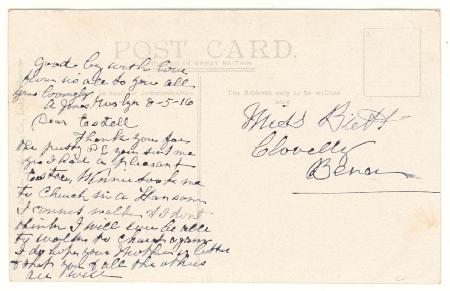 POST CARD.
PRINTED IN GREAT BRITAIN
Good by with love
from us all to you all
yours lovingly
8-5-16
Dear Estell
Thank you for
the pretty P C you sent me
yes I had a pleasant
Easter, Winnie took me
to Church in a Hansom
I cannot walk & I dont
think I will ever be able
to walk to Church again
I do hope your Mother is better
& that you & all the others
are well
The address only to be written
here
Miss
Clovelly